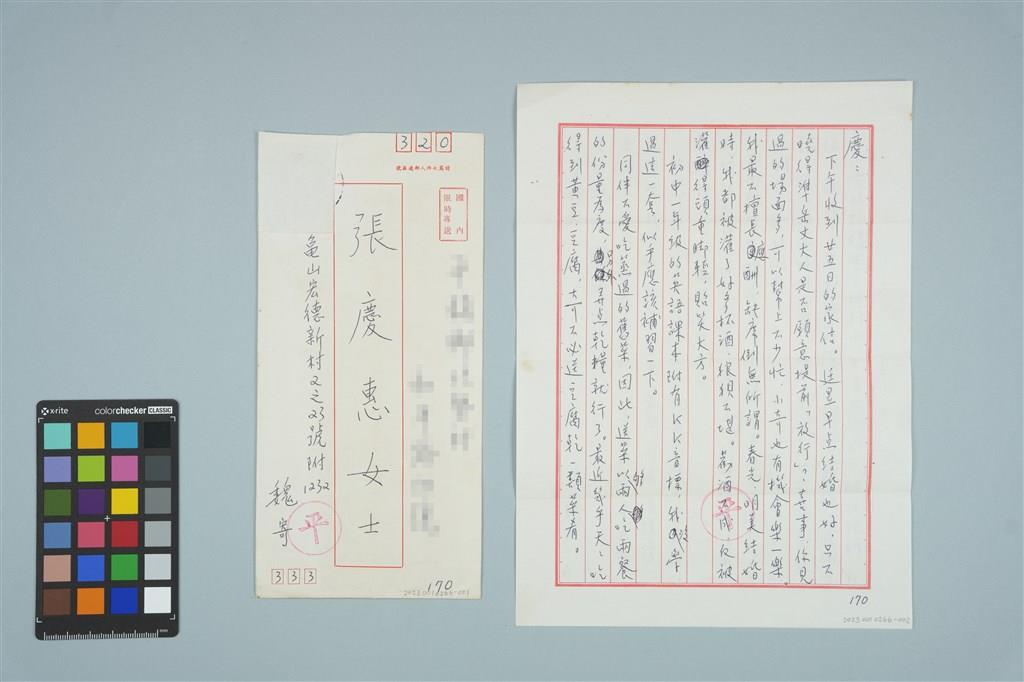 x-rite
colorchecker CLASSIC
320
國內
限時專送
張慶惠女士
龜山宏德新村又之23號附1232
魏寄
平
333
170
2023.001.0266-001
慶：
下午收到廿五日的家信。逵昱早点結婚也好，只不
曉得準岳丈大人是否願意提前「放行」？喜事，你見
過的場面多，可以幫上不少忙，小奇也有機會樂一樂。
我最不擅長應酬，缺席倒無所謂。春光、明美結婚
時，我都被灌了好多杯酒，狼狽不堪。勸酒不成，反被
灌得頭重脚輕，貽笑大方。
初中一年級的英語課本附有KK音標，我沒學
過這一套，似乎應該補習一下。
同伴不愛吃蒸過的舊菜，因此，送菜以兩人吃兩餐
的份量為度，另外弄点乾糧就行了。最近幾乎天天吃
得到黃豆、豆腐，大可不必送豆腐乾一類菜肴。
平
170
2023.001.0266-002